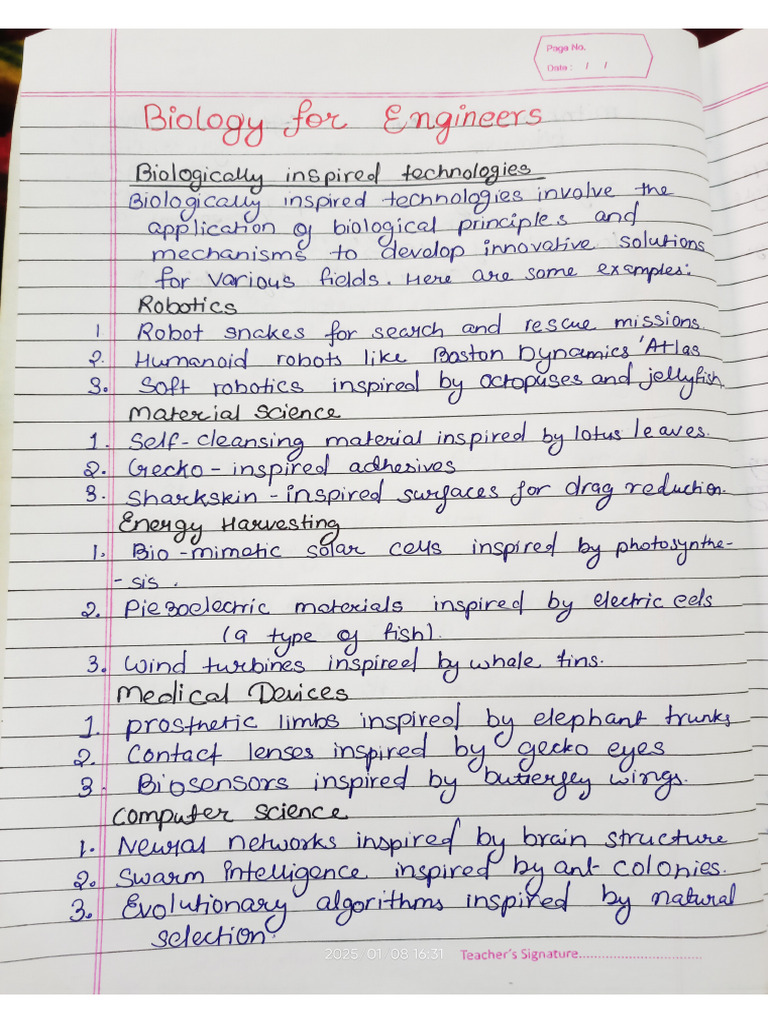 Page No.
Date: / /
Biology for Engineers
Biologically inspired technologies
Biologically inspired technologies involve the
application of biological principles and
mechanisms to develop innovative solutions
for various fields. Here are some examples:
Robotics
1 Robot snakes for search and rescue missions.
2. Humanoid robots like Boston Dynamics 'Atlas
3. Soft robotics inspired by octopuses and jellyfish.
Material Science
1. Self-cleansing material inspired by lotus leaves.
2. Gecko-inspired adhesives
3. Sharkskin-inspired surfaces for drag reduction.
Energy Harvesting
1. Bio-mimetic solar cells inspired by photosynthe-
-sis.
2. Piezoelectric materials inspired by electric eels
(a type of fish).
3. Wind turbines inspired by whale fins.
Medical Devices
1. Prosthetic limbs inspired by elephant trunks
2. Contact lenses inspired by gecko eyes
3. Biosensors inspired by butterfly wings.
Computer Science
1. Neural networks inspired by brain structure
2. Swarm intelligence inspired by ant colonies.
3. Evolutionary algorithms inspired by natural
selection.
2025.01.08 16:31
Teacher's Signature..............................